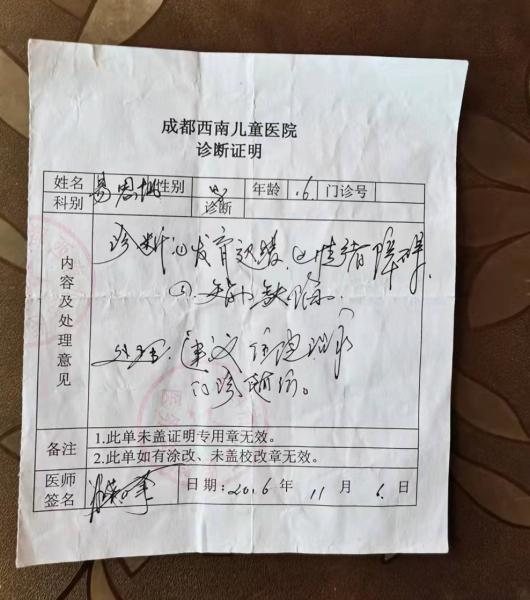 成都西南儿童医院
诊断证明
姓名 易思 性别 年龄 6 门诊号
科别 诊断
内容及处理意见
诊断:①发育迟缓 ②情绪障碍
③
处理:建议住院
门诊随访。
备注 1.此单未盖证明专用章无效。
2.此单如有涂改、未盖校改章无效。
医师签名 日期:2016 年 11 月 6 日